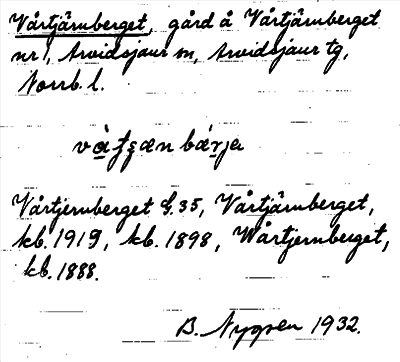 Vårtjärnberget, gård å Vårtjärnberget
nr 1, Arvidsjaur sn, Arvidsjaur tg,
Norrb. l.
Vårtjernberget G.35, Vårtjärnberget,
kb. 1919, kb. 1898, Wårtjernberget,
kb. 1888.
B. 1932.